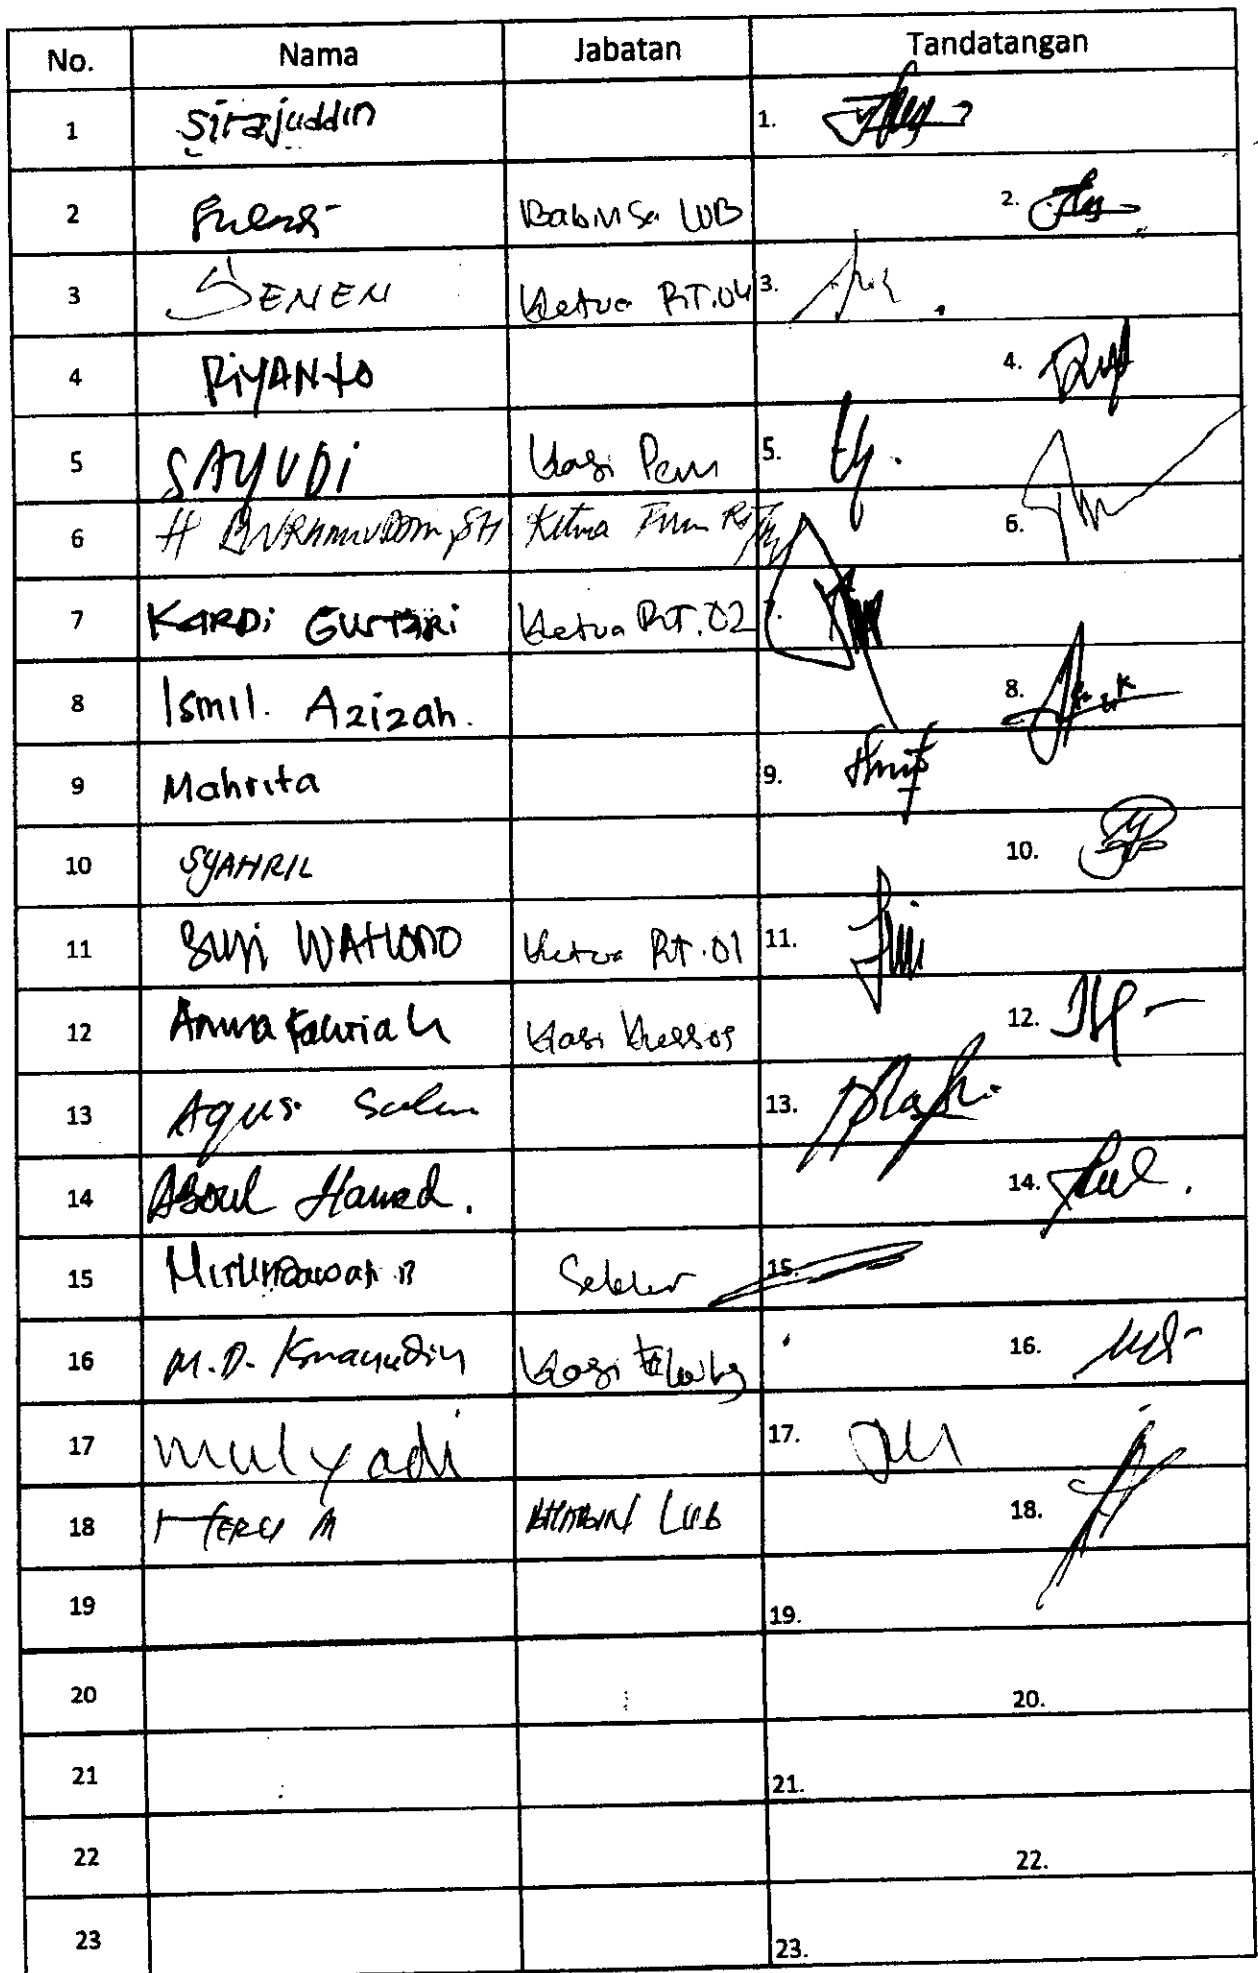 No. Nama Jabatan Tandatangan
1 Sirajuddin 1.
2 Babinsa LUB 2.
3 SENEN Ketua RT.04 3.
4 RiYANto 4.
5 SAYUDi Kasi Pem 5.
6 H BURHANUDDIN, SH Ketua 6.
7 KARDi GUSTARi Ketua RT.02 7.
8 Ismil. Azizah. 8.
9 Mahrita 9.
10 SYAHRIL 10.
11 WAHONO Ketua RT.01 11.
12 Kasi Kessos 12.
13 Agus Salim 13.
14 ABDUL Hamed. 14.
15 15.
16 M.D. Kasi 16.
17 mulyadi 17.
18 HERU M LUB 18.
19 19.
20 20.
21 21.
22 22.
23 23.